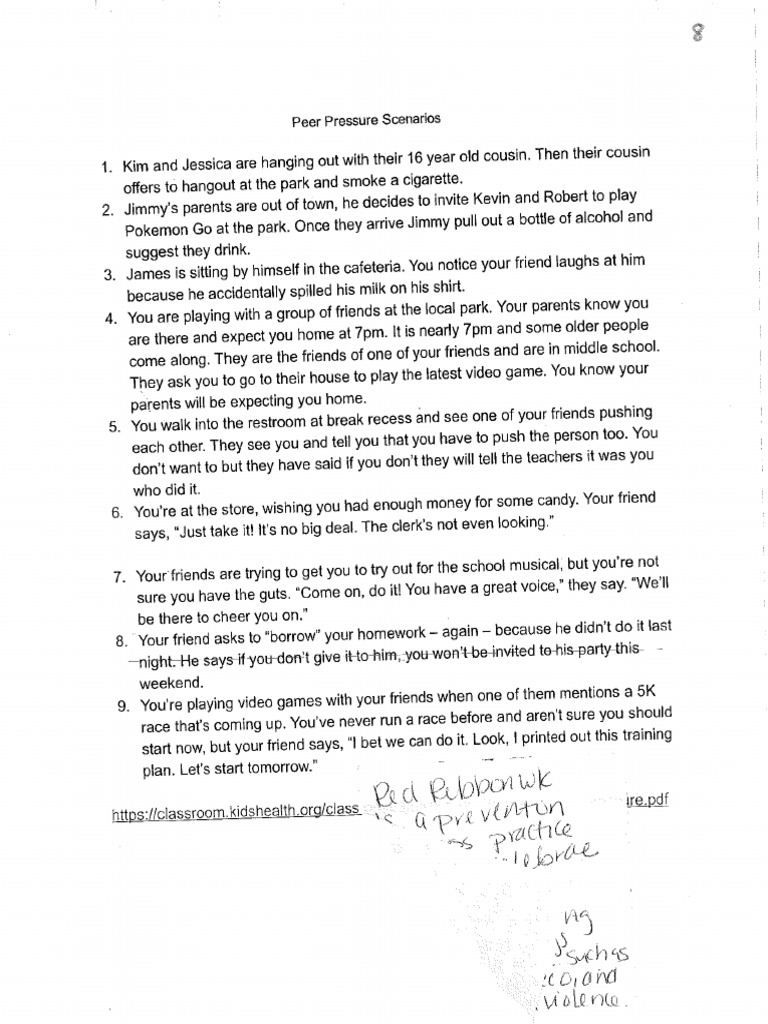 8
Peer Pressure Scenarios
1. Kim and Jessica are hanging out with their 16 year old cousin. Then their cousin
offers to hangout at the park and smoke a cigarette.
2. Jimmy's parents are out of town, he decides to invite Kevin and Robert to play
Pokemon Go at the park. Once they arrive Jimmy pull out a bottle of alcohol and
suggest they drink.
3. James is sitting by himself in the cafeteria. You notice your friend laughs at him
because he accidentally spilled his milk on his shirt.
4. You are playing with a group of friends at the local park. Your parents know you
are there and expect you home at 7pm. It is nearly 7pm and some older people
come along. They are the friends of one of your friends and are in middle school.
They ask you to go to their house to play the latest video game. You know your
parents will be expecting you home.
5. You walk into the restroom at break recess and see one of your friends pushing
each other. They see you and tell you that you have to push the person too. You
don't want to but they have said if you don't they will tell the teachers it was you
who did it.
6. You're at the store, wishing you had enough money for some candy. Your friend
says, "Just take it! It's no big deal. The clerk's not even looking."
7. Your friends are trying to get you to try out for the school musical, but you're not
sure you have the guts. "Come on, do it! You have a great voice," they say. "We'll
be there to cheer you on."
8. Your friend asks to "borrow" your homework – again – because he didn't do it last
night. He says if you don't give it to him, you won't be invited to his party this
weekend.
9. You're playing video games with your friends when one of them mentions a 5K
race that's coming up. You've never run a race before and aren't sure you should
start now, but your friend says, "I bet we can do it. Look, I printed out this training
plan. Let's start tomorrow."
https://classroom.kidshealth.org/class ire.pdf
Red Ribbon Wk
is a prevention
practice
such as
and
violence.